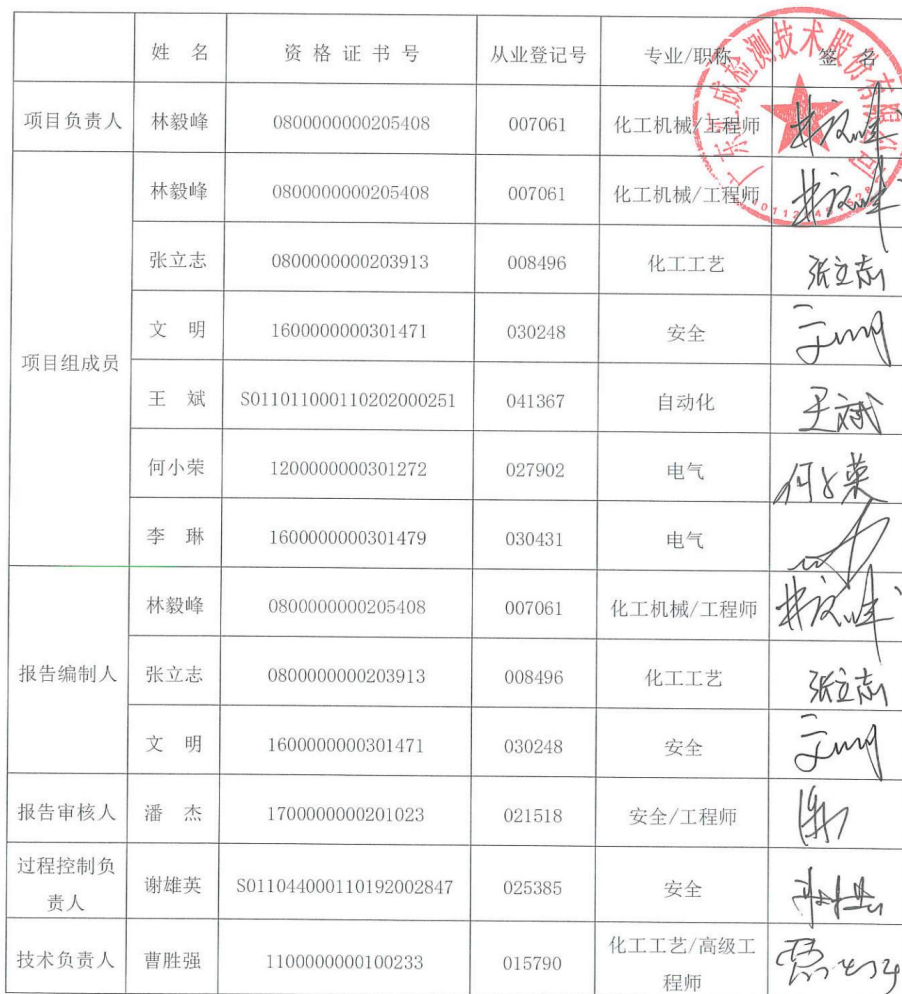 姓 名 资格证书号 从业登记号 专业/职称 签 名
项目负责人 林毅峰 0800000000205408 007061 化工机械/工程师 林毅峰
项目组成员
林毅峰 0800000000205408 007061 化工机械/工程师 林毅峰
张立志 0800000000203913 008496 化工工艺 张立志
文 明 1600000000301471 030248 安全 文明
王 斌 S011011000110202000251 041367 自动化 王斌
何小荣 1200000000301272 027902 电气 何小荣
李 琳 1600000000301479 030431 电气
报告编制人
林毅峰 0800000000205408 007061 化工机械/工程师 林毅峰
张立志 0800000000203913 008496 化工工艺 张立志
文 明 1600000000301471 030248 安全 文明
报告审核人 潘 杰 1700000000201023 021518 安全/工程师
过程控制负
责人 谢雄英 S011044000110192002847 025385 安全
技术负责人 曹胜强 1100000000100233 015790 化工工艺/高级工
程师
检测技术股份有限公司